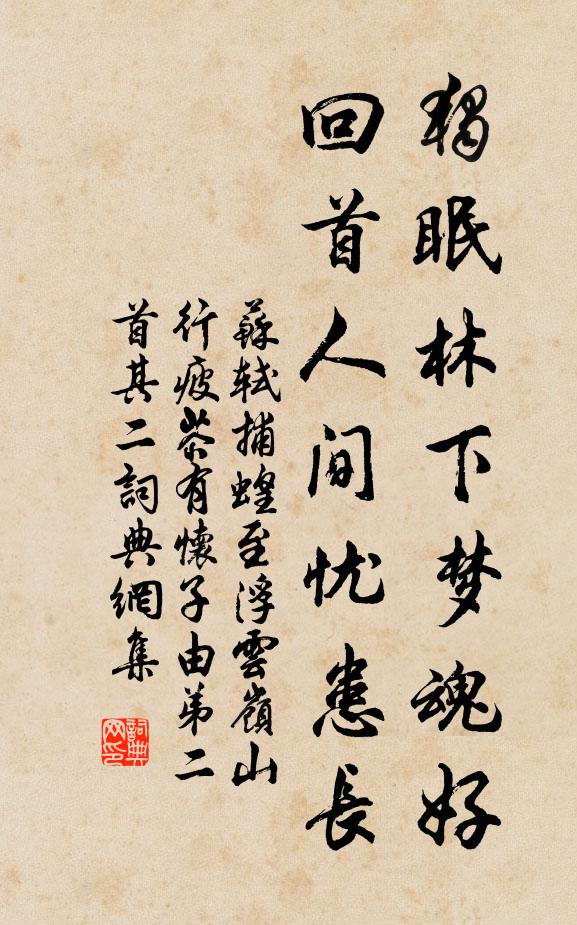 獨眠林下梦魂好
回首人间忧患長
蘇軾捕蝗至浮雲嶺山
行疲苶有懷子由弟二
首其二詞典網集
詞典网印